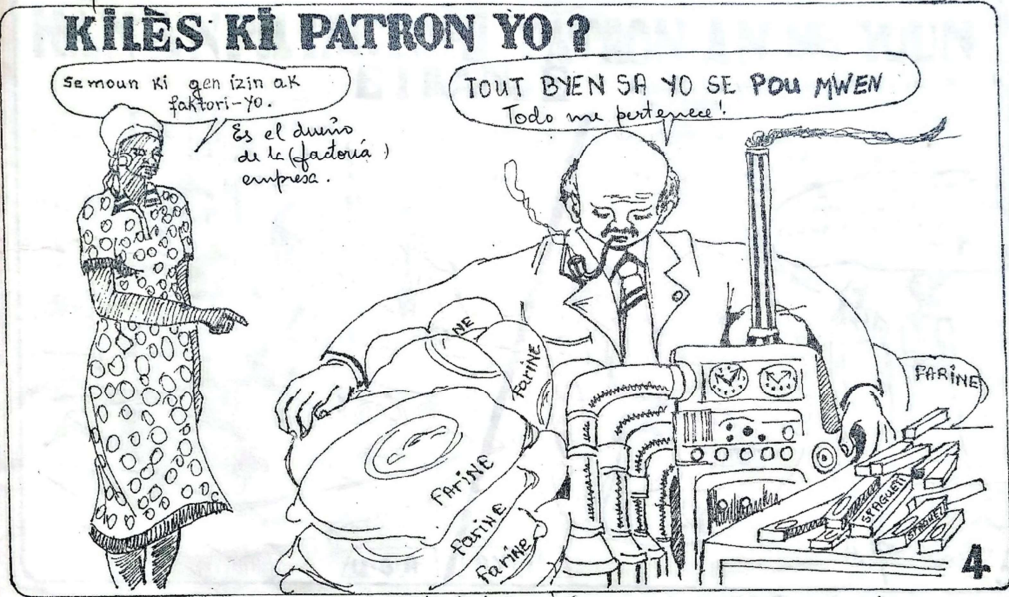 KILÈS KI PATRON YO?
Se moun ki gen izin ak
faktori-yo.
Es el dueño
de la (factoría)
empresa.
TOUT BYEN SA YO SE POU MWEN
Todo me pertenece!
NE
FARINE
FARINE
FARINE
FARINE
FARINE
SPAGUETI
SPAGUETI
4